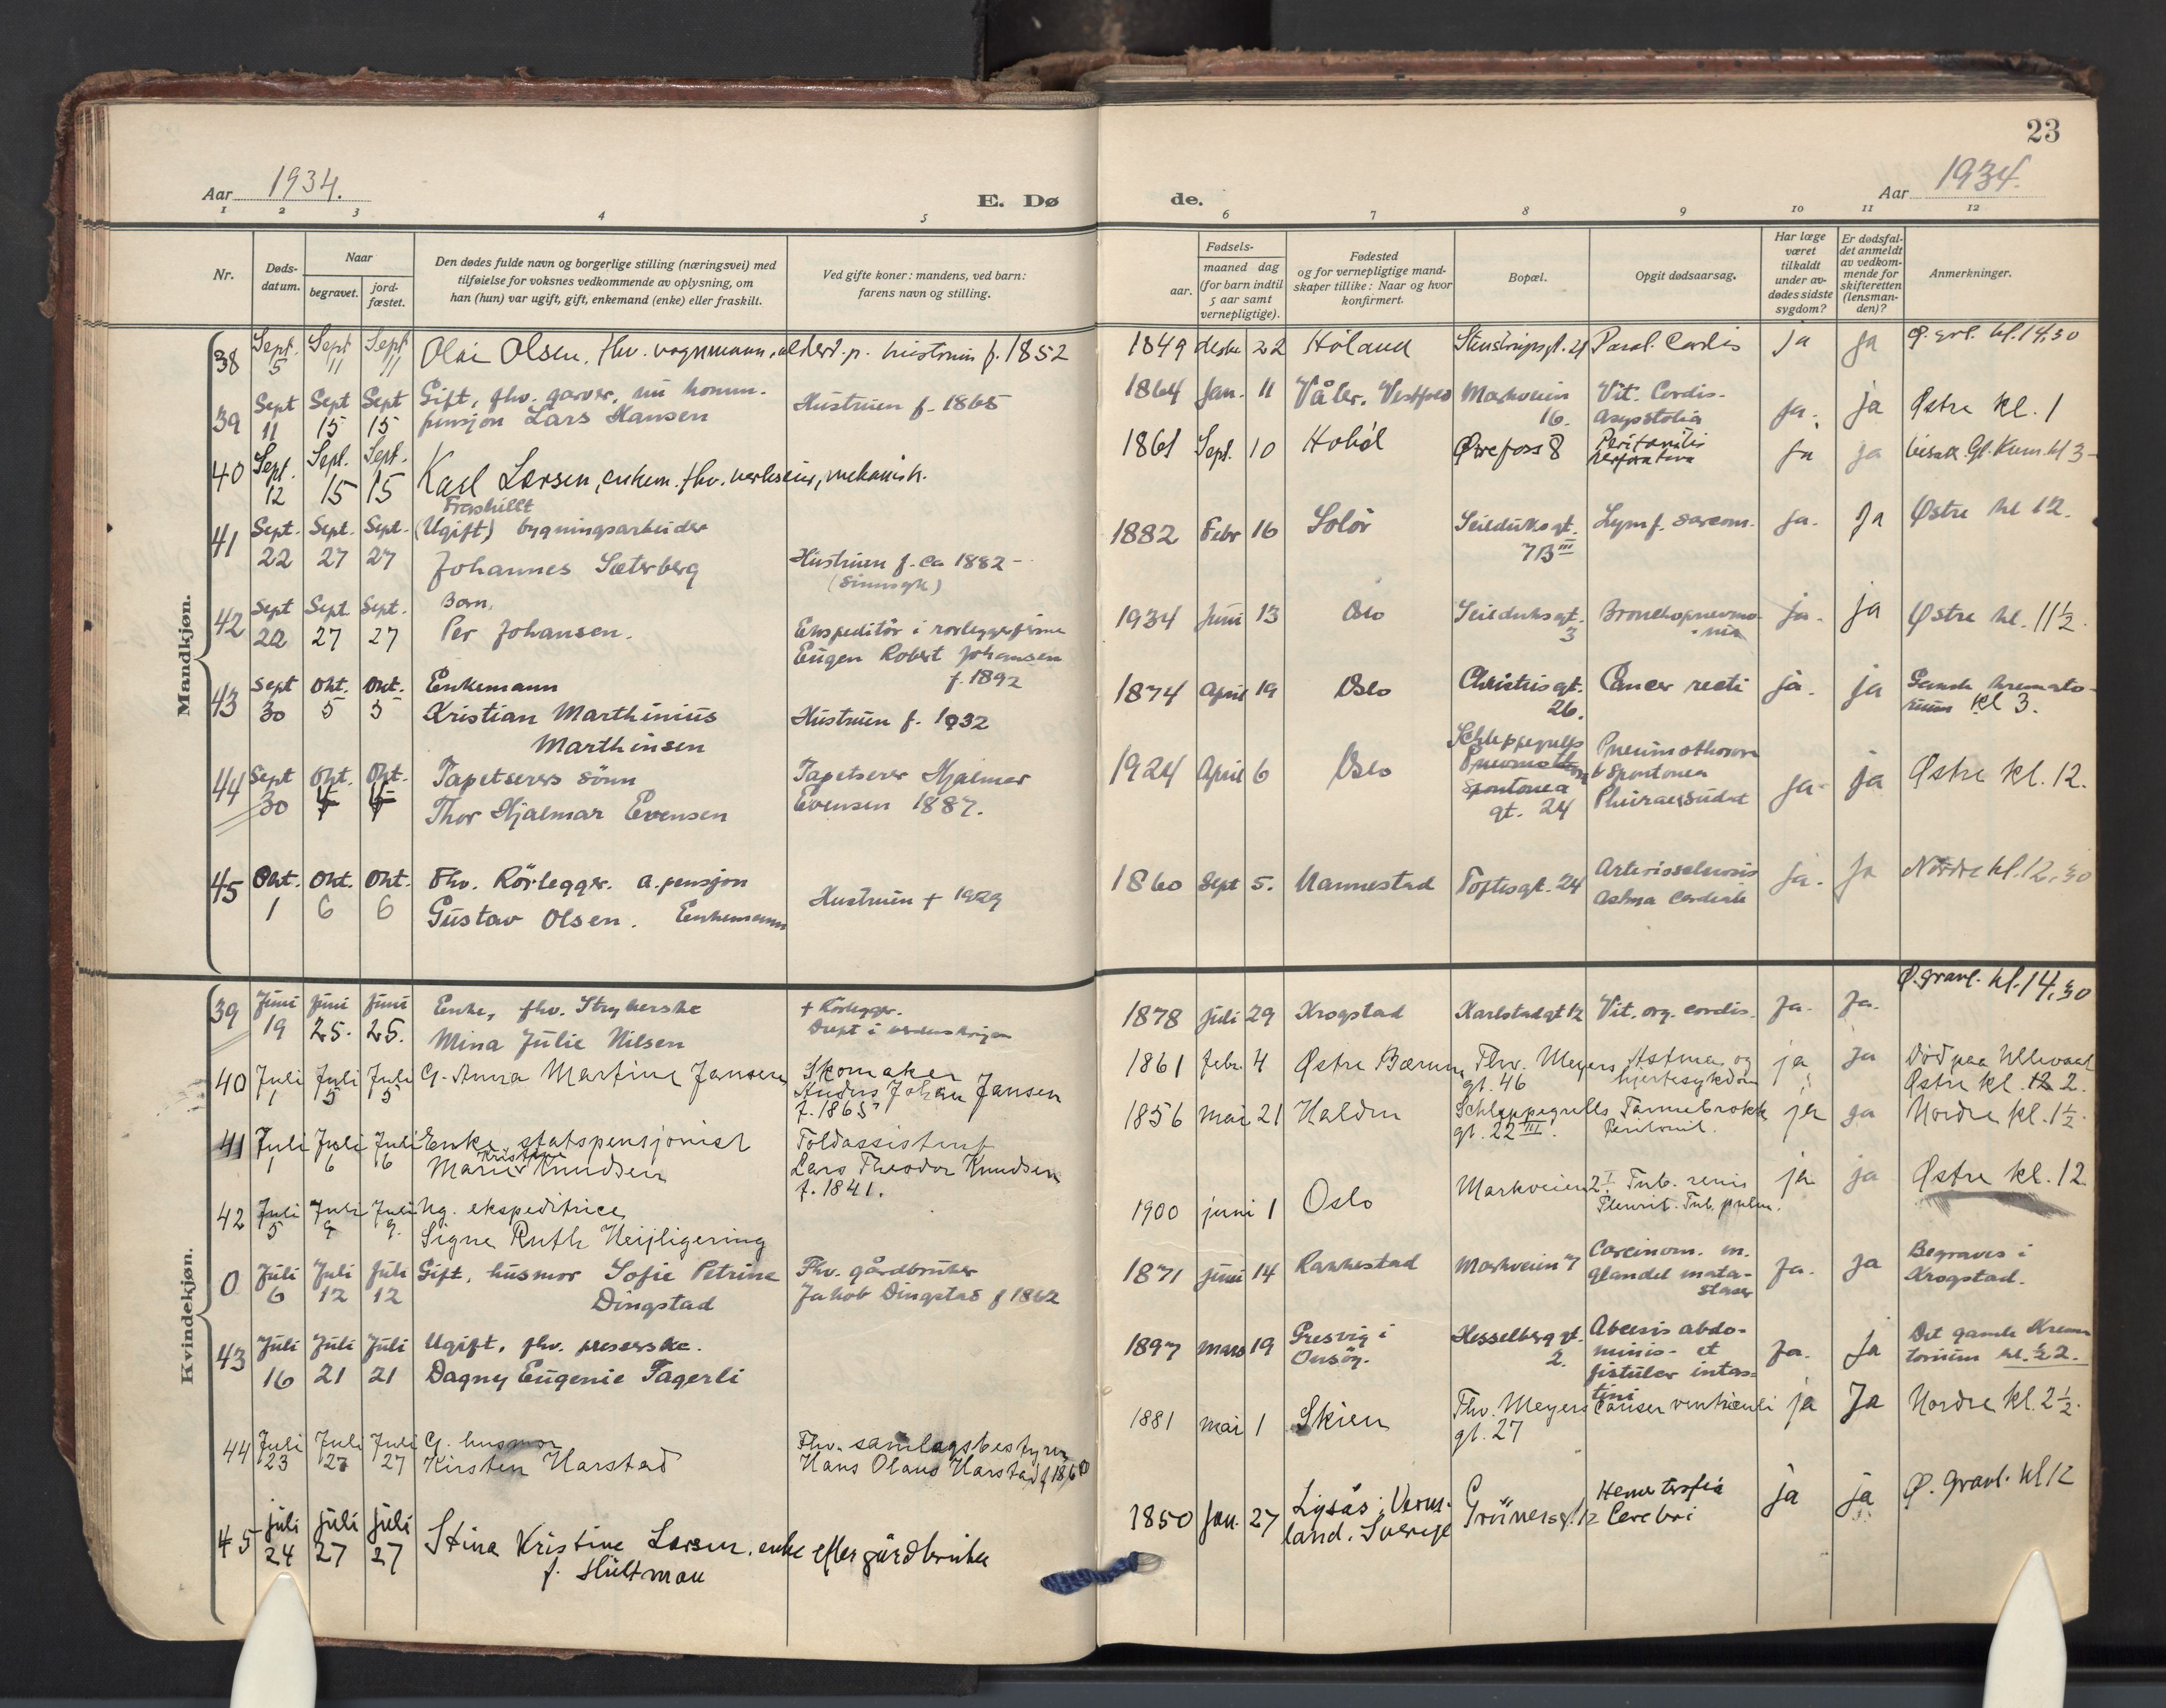 23
Aar 1934.
E. Dø
de.
Aar 1934.
1 2 3 4 5 6 7 8 9 10 11 12
Nr.
Døds-
datum.
Naar
begravet.
jord-
fæstet.
Den dødes fulde navn og borgerlige stilling (næringsvei) med
tilføielse for voksnes vedkommende av oplysning, om
han (hun) var ugift, gift, enkemand (enke) eller fraskilt.
Ved gifte koner: mandens, ved barn:
farens navn og stilling.
Fødsels-
aar.
maaned dag
(for barn indtil
5 aar samt
vernepligtige).
Fødested
og for vernepligtige mand-
skaper tillike: Naar og hvor
konfirmert.
Bopæl.
Opgit dødsaarsag.
Har læge
været
tilkaldt
under av-
dødes sidste
sygdom?
Er dødsfal-
det anmeldt
av vedkom-
mende for
skifteretten
(lensman-
den)?
Anmerkninger.
Mandkjøn.
38 Sept. 5 Sept 11 Sept 11
Olai Olsen, fhv. vognmann, hustruen f. 1852
1849 22 Høland
Paral. Cordis
ja ja
kl. 14,30
39 Sept 11 Sept 15 Sept 15
Gift, fhv. garver, nu komm.
pensjon Lars Hansen
Hustruen f. 1865
1864 Jan. 11 Våler, Vestfold
Markveien
16.
Vit. Cordis.
Asystolia
ja. ja
Østre kl. 1
40 Sept. 12 Sept. 15 Sept. 15
Karl Larsen, enkem. fhv. verkseier, mekanisk.
1861 Sept. 10 Hobøl
Øvrefoss 8
Peritonitis
perforativa
ja ja
Gl. Krem. kl 3
41 Sept. 22 Sept. 27 Sept. 27
Fraskillt
(Ugift) bygningsarbeider
Johannes Sæterberg
Hustruen f. ca 1882
(Sinnsyk)
1882 Febr 16 Solør
Seilduksgt.
7B III
Lymf. sarcom.
ja. ja
Østre kl 12.
42 Sept 22 Sept 27 Sept. 27
Barn,
Per Johansen.
Ekspeditør i rørleggerfirma
Eugen Robert Johansen
f. 1892
1934 Juni 13 Oslo
Seilduksgt.
3
Bronchopneumo-
nia
ja. ja
Østre kl. 11½
43 Sept 30 Okt. 5 Okt. 5
Enkemann
Kristian Marthinius
Marthinsen
Hustruen f. 1932
1874 April 19 Oslo
Christiesgt.
26.
Cancer recti
ja. ja
Gamle kremato-
rium kl 3.
44 Sept 30 Okt. Okt.
Tapetserers sønn
Thor Hjalmar Evensen
Tapetserer Hjalmar
Evensen 1887.
1924 April 6 Oslo
Schleppegrells
Spontanea
gt. 24
Pneumothorax
Spontanea
Pleuraexsudat
ja. ja
Østre kl. 12.
45 Okt. 1 Okt. 6 Okt. 6
Fhv. Rørlegger. a. pensjon
Gustav Olsen. Enkemann
Hustruen + 1929
1860 Sept 5. Nannestad
Toftesgt. 24
Arteriosclerosis
Astma Cordiale
ja. ja
Nordre kl. 12,30
Kvindekjøn.
39 Juni 19 Juni 25. Juni 25.
Enke, fhv. Strykerske
Mina Julie Nilsen
+ Rørlegger.
Drept i verdenskrigen
1878 juli 29 Krogstad
Karlstadgt 12
Vit. org. cordis.
Ja. Ja.
Ø. gravl. kl. 14,30
40 Juli 1 Juli 5 Juli 5
G. Anna Martine Jansen
Skomaker
Anders Johan Jansen
f. 1865
1861 febr. 4 Østre Bærum
Thv. Meyers
gt. 46
Astma og
hjertesykdom
ja ja
Død paa Ullevaal
Østre kl. 2.
41 Juli 1 Juli 6 Juli 6
Enke statspensjonist
Kristine
Marie Knudsen
Toldassistent
Lars Theodor Knudsen
f. 1841.
1856 mai 21 Halden
Schleppegrells
gt. 22 III.
Tarmebrokk
Peritonit.
ja ja
Nordre kl. 1½.
42 Juli 5 Juli 9 Juli 9.
Ug. ekspeditrice
Signe Ruth Heijligering
1900 juni 1 Oslo
Markveien 2 I
Tub. renis
Pleurit. Tub. pulm.
ja ja
Østre kl. 12
0 Juli 6 Juli 12 Juli 12
Gift, husmor Sofie Petrine
Dingstad
Fhv. gårdbruker
Jakob Dingstad f 1862
1871 juni 14 Rakkestad
Markveien 7
Carcinom. m.
glandel mata-
staser
Ja. ja
Begraves i
Krogstad.
43 Juli 16 Juli 21 Juli 21
Ugift, fhv. preserske.
Dagny Eugenie Fagerli
1897 mars 19 Gresvig i
Onsøy.
Hesselberg gt.
2.
Abcesis abdo-
minis- et
fistuler intes-
tini
Ja. Ja
Det gamle Krema
torium kl. ½2.
44 Juli 23 Juli 27 Juli 27
G. husmor
Kirsten Harstad
Fhv. samlagsbestyrer
Hans Olaus Harstad f 1860
1881 mai 1 Skien
Thv. Meyers
gt. 27
Cancer ventriculi
ja Ja
Nordre kl. 2½.
45 juli 24 juli 27 juli 27
Stina Kristine Larsen, enke efter gårdbruker
f. Hultman
1850 Jan. 27
land. Sverige
Grünersgt.
Cerebri
ja ja
Ø. gravl. kl 12